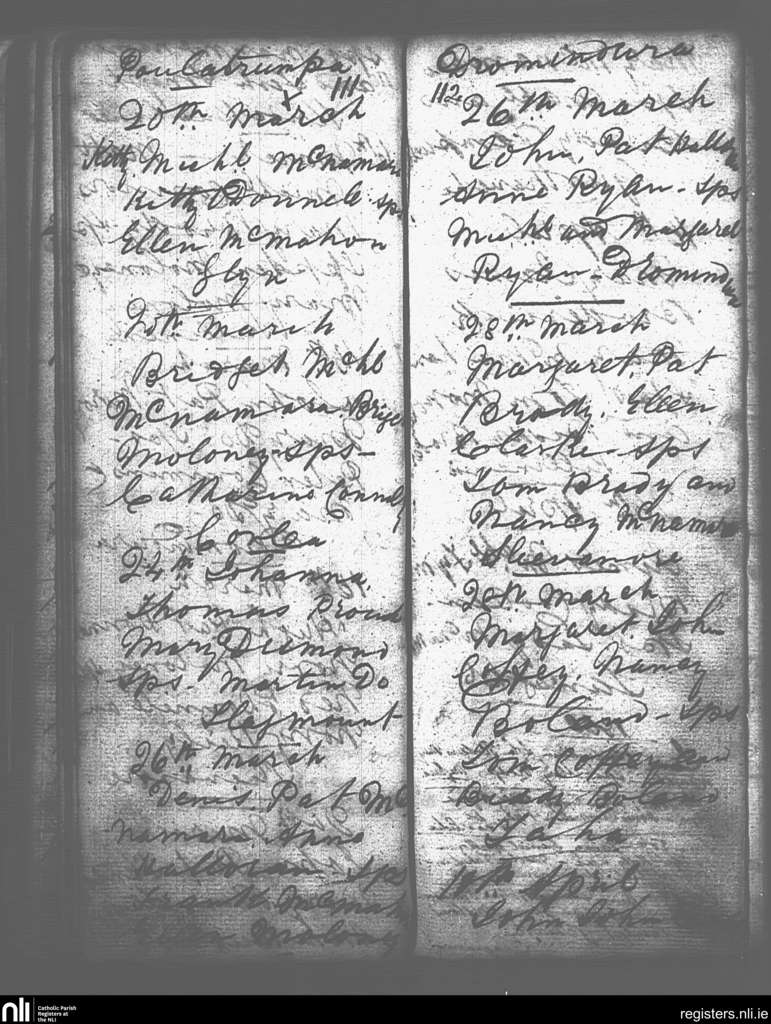 Poulatrumpa
111
20th March
Kitty, Michl McNamara
Kitty ODonnell sps
Ellen McMahon
Glyn
20th March
Bridget, Michl
McNamara Bridget
Moloney - sps -
Catharine Connelly
Coolea
24th Johanna,
Thomas Proud
Mary Desmond
sps. Martin Do
26th March
Denis Pat Mc
Namara. Anne
Halloran - Sps
Frank McMah
Ellen Molony
Dromindura
112
26th March
John, Pat Hallo
Anne Ryan - Sps
Michl and Margaret
Ryan - Dromindura
28th March
Margaret, Pat
Brady, Ellen
Clarke - sps
Tom Brady and
Nancy McNamara
Slievanore
28th March
Margaret. John
Coffey, Nancy
Boland - Sps
Tom Coffey and
Biddy Boland
10th April
John John
nli
Catholic Parish
Registers at
the NLI
registers.nli.ie